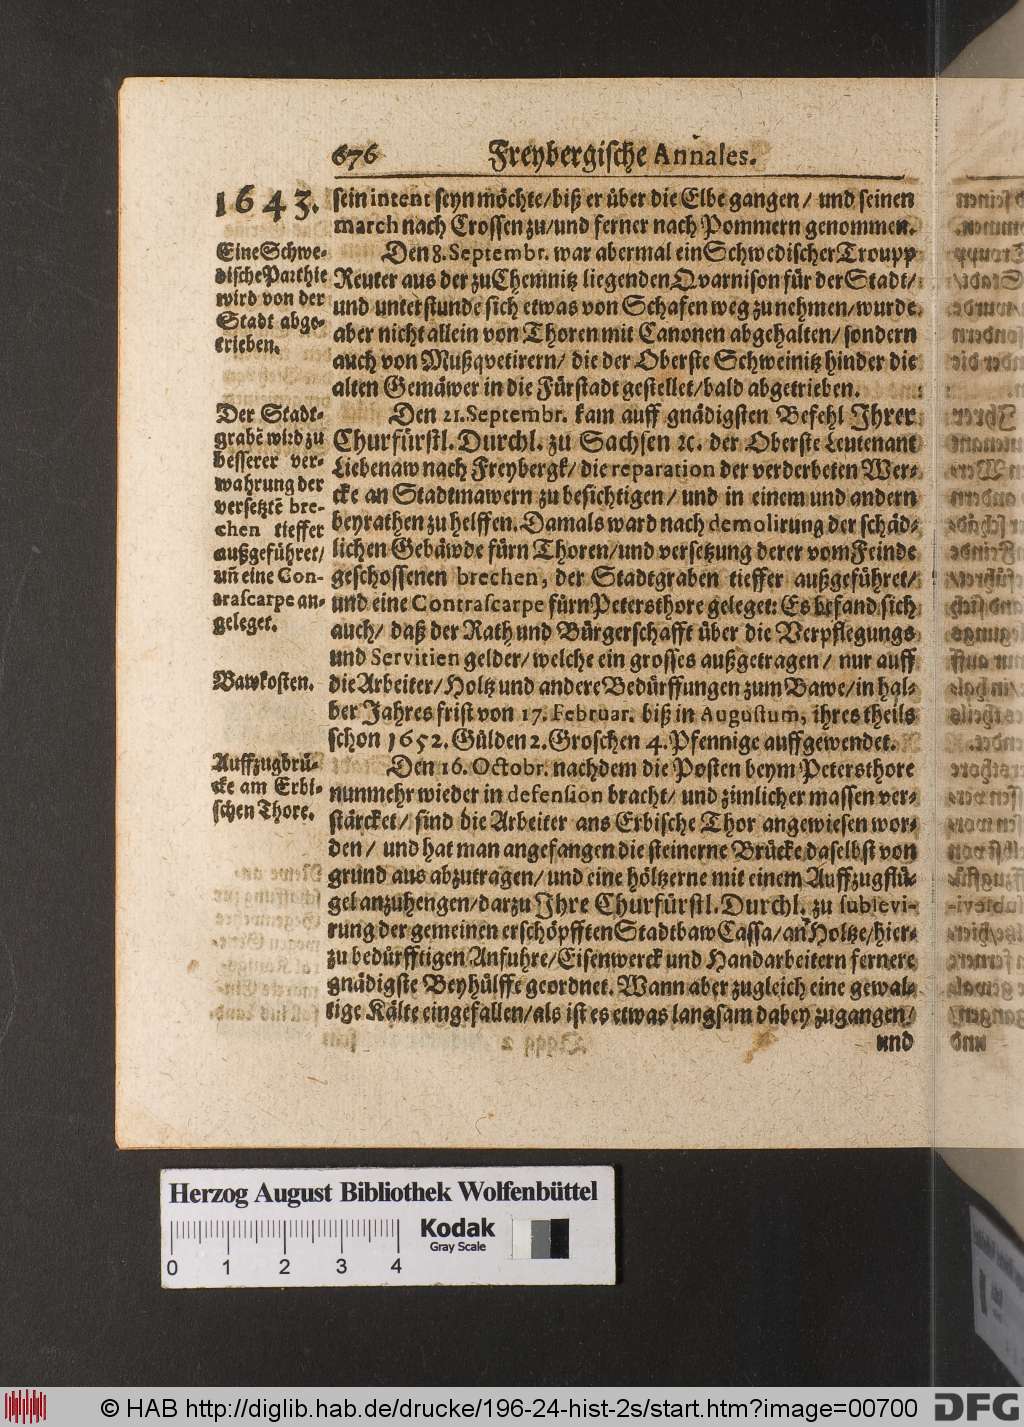 676 Freybergische Annales.
1643.
sein intent seyn möchte/biß er über die Elbe gangen / und seinen
march nach Crossen zu/und ferner nach Pommern genommen.
Eine Schwe-
dische Parthie
wird von der
Stadt abge-
trieben.
Den 8. Septembr. war abermal ein Schwedischer Troupp
Reuter aus der zu Chemnitz liegenden Qvarnison für der Stadt/
und unterstunde sich etwas von Schafen weg zu nehmen/wurde
aber nicht allein von Thoren mit Canonen abgehalten/ sondern
auch von Mußqvetirern/ die der Oberste Schweinitz hinder die
alten Gemäwer in die Fürstadt gestellet/bald abgetrieben.
Der Stadt-
grabē wird zu
besserer ver-
wahrung der
versetztē bre-
chen tieffer
außgeführet/
uñ eine Con-
trascarpe an-
geleget.
Den 21. Septembr. kam auff gnädigsten Befehl Ihrer
Churfürstl. Durchl. zu Sachsen ꝛc. der Oberste Leutenant
Liebenaw nach Freybergk/ die reparation der verderbeten Wer-
cke an Stadtmawern zu besichtigen/ und in einem und andern
beyrathen zu helffen. Damals ward nach demolirung der schäd-
lichen Gebäwde fürn Thoren/und versetzung derer vom Feinde
geschossenen brechen, der Stadtgraben tieffer außgeführet/
und eine Contrascarpe fürn Petersthore geleget: Es befand sich
auch/ daß der Rath und Bürgerschafft über die Verpflegungs
und Servitien gelder/welche ein grosses außgetragen / nur auff
Bawkosten.
die Arbeiter/Holtz und andere Bedürffungen zum Bawe/in hal-
ber Jahres frist von 17. Februar. biß in Augustum, ihres theils
schon 1652. Gülden 2. Groschen 4. Pfennige auffgewendet.
Auffzugbrü-
cke am Erbi-
schen Thore.
Den 16. Octobr. nachdem die Posten beym Petersthore
nunmehr wieder in defension bracht/ und zimlicher massen ver-
stärcket/ sind die Arbeiter ans Erbische Thor angewiesen wor-
den / und hat man angefangen die steinerne Brücke daselbst von
grund aus abzutragen/ und eine höltzerne mit einem Auffzugflü-
gel anzuhengen/darzu Ihre Churfürstl. Durchl. zu sublevi-
rung der gemeinen erschöpfften Stadtbaw Cassa/an Holtze/hier-
zu bedürfftigen Anfuhre/Eisenwerck und Handarbeitern fernere
gnädigste Beyhülffe geordnet. Wann aber zugleich eine gewal-
tige Kälte eingefallen/als ist es etwas langsam dabey zugangen/
und
Herzog August Bibliothek Wolfenbüttel
Kodak
Gray Scale
0 1 2 3 4
© HAB http://diglib.hab.de/drucke/196-24-hist-2s/start.htm?image=00700
DFG